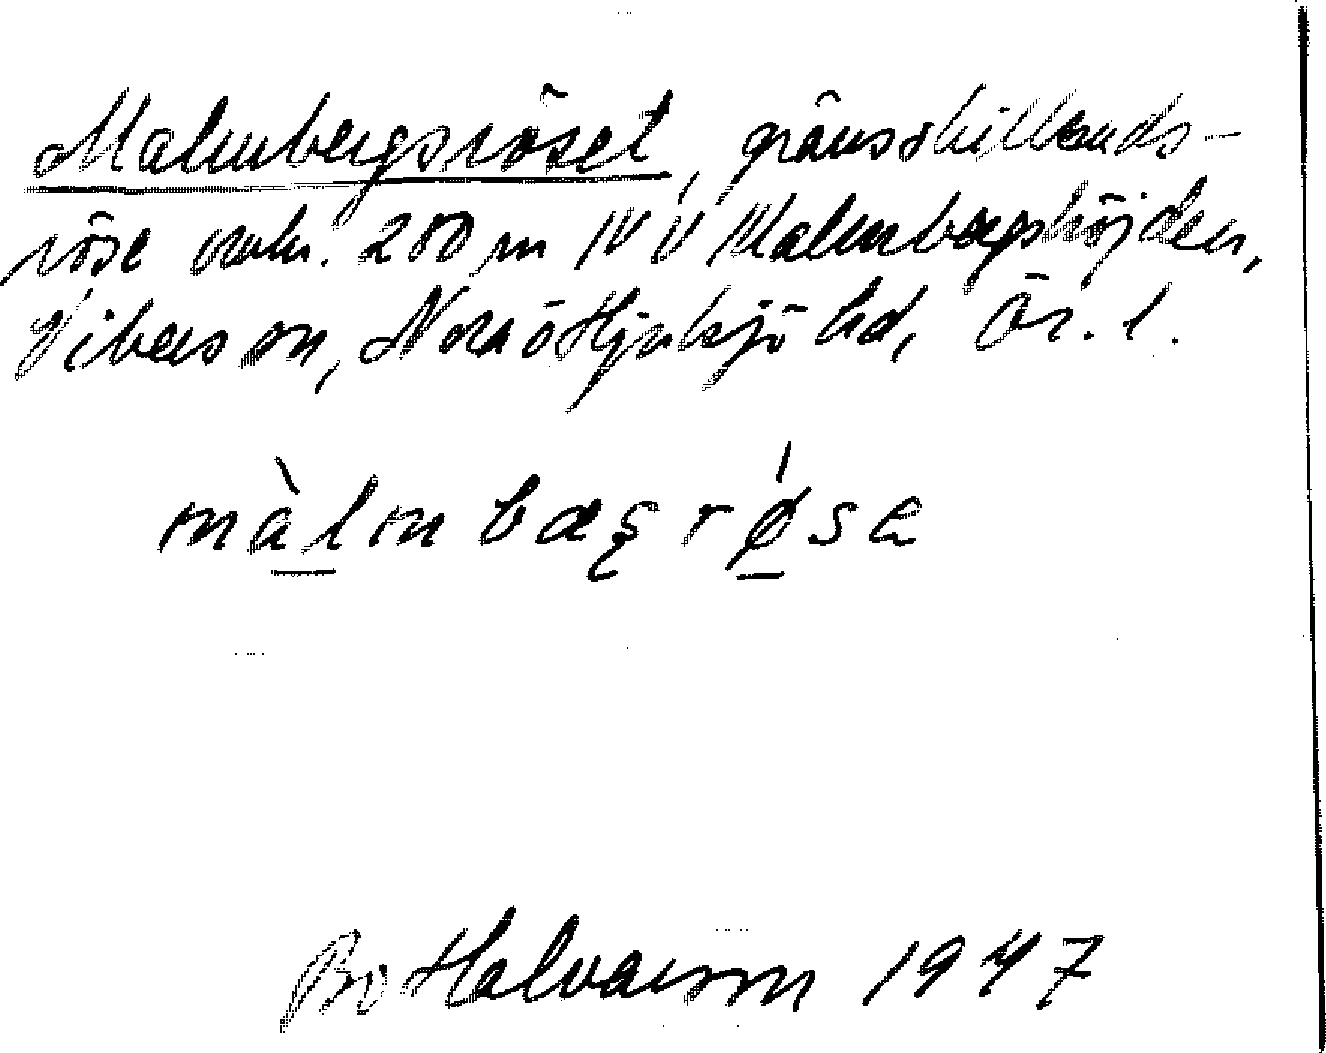 Malmbergsröset, gränsskillnads-
röse omkr. 200 m NV Malmbergshöjden,
Vikersvm, Nora o Hjulsjö hd, Ör. l.
màlmbæʂrǿse
Bo Halvarson 1947